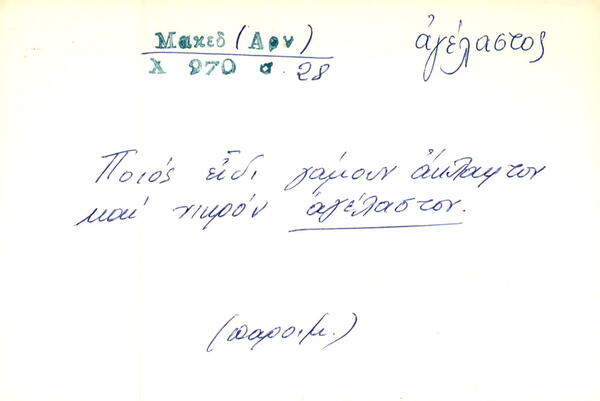 Μακεδ (Αρν)
Χ 970 σ. 28
ἀγέλαστος
Ποιός εἶδι γάμουν ἄκλαφτον
καί νικρόν ἀγέλαστον.
(παροιμ.)